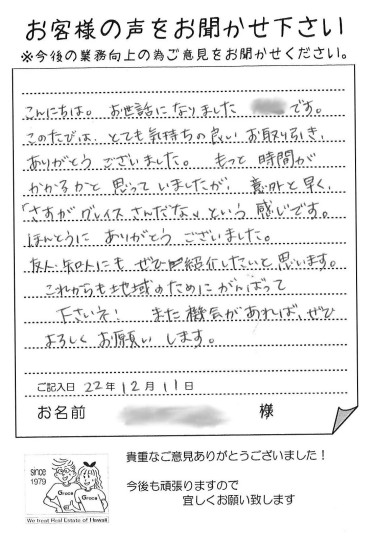 お客様の声をお聞かせ下さい
※今後の業務向上の為ご意見をお聞かせください。
こんにちは。 お世話になりました です。
このたびは、とても気持ちの良いお取り引き、
ありがとうございました。 もっと時間が
かかるかと思っていましたが、意外と早く、
「さすがグレイスさんだな」という感じです。
ほんとうに ありがとうございました。
友人・知人にも ぜひ紹介したいと思います。
これからも地域のためにがんばって
下さいネ! また機会があれば、ぜひ
よろしくお願いします。
ご記入日 22年12月11日
お名前 様
since
1979
Grace Grace
We treat Real Estate of Hawaii
貴重なご意見ありがとうございました！
今後も頑張りますので
宜しくお願い致します